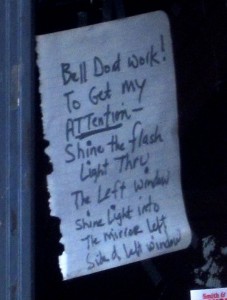 Bell Dont work!
To Get my
ATTention-
Shine the flash
Light Thru
The Left window
Shine Light into
The Mirror Left
Side of Left window